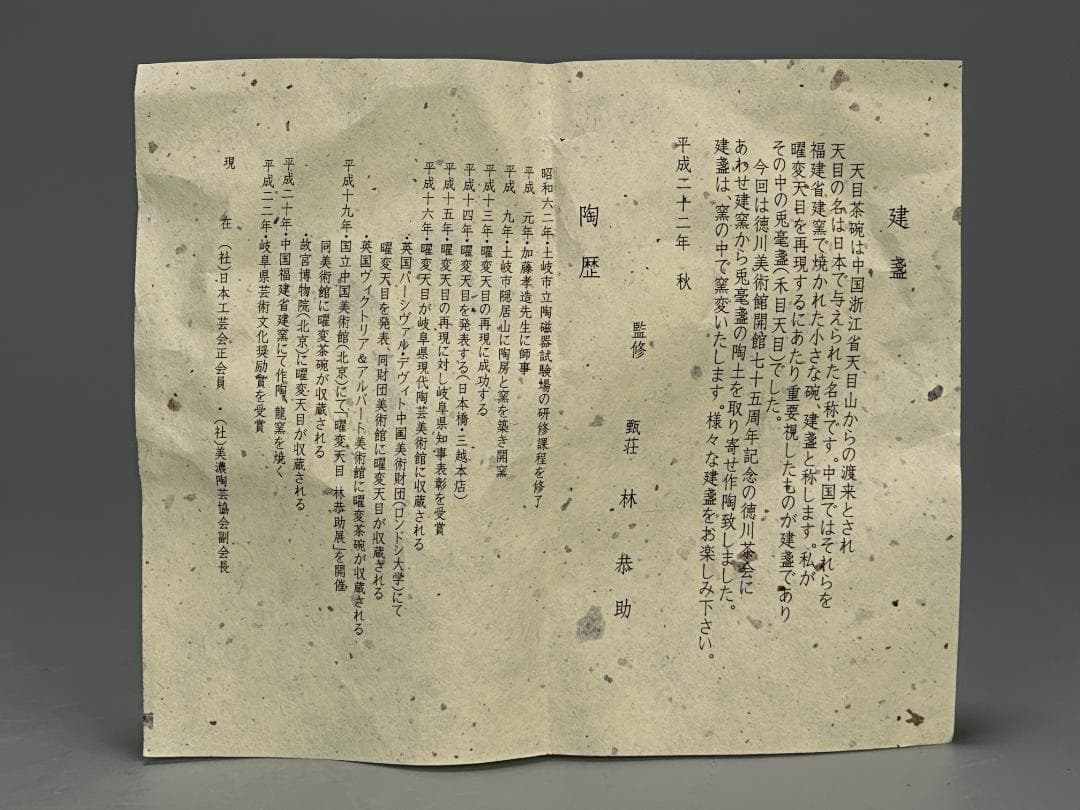 建盞
天目茶碗は中国浙江省天目山からの渡来とされ
天目の名は日本で与えられた名称です。中国ではそれらを
福建省建窯で焼かれた小さな碗、建盞と称します。私が
曜変天目を再現するにあたり重要視したものが建盞であり
その中の兎毫盞(禾目天目)でした。
今回は徳川美術館開館七十五周年記念の徳川茶会に
あわせ建窯から兎毫盞の陶土を取り寄せ作陶致しました。
建盞は、窯の中で窯変いたします。様々な建盞をお楽しみ下さい。
平成二十二年 秋
監修 甄荘 林恭助
陶歴
昭和六二年・土岐市立陶磁器試験場の研修課程を修了
平成 元年・加藤孝造先生に師事
平成 九年・土岐市隠居山に陶房と窯を築き開窯
平成十三年・曜変天目の再現に成功する
平成十四年・曜変天目を発表する(日本橋・三越本店)
平成十五年・曜変天目の再現に対し岐阜県知事表彰を受賞
平成十六年・曜変天目が岐阜県現代陶芸美術館に収蔵される
・英国パーシヴァル・デヴィト中国美術財団(ロンドン大学)にて
曜変天目を発表、同財団美術館に曜変天目が収蔵される
・英国ヴィクトリア&アルバート美術館に曜変茶碗が収蔵される
平成十九年・国立中国美術館(北京)にて「曜変天目 林恭助展」を開催
同美術館に曜変茶碗が収蔵される
・故宮博物院(北京)に曜変天目が収蔵される
平成二十年・中国福建省建窯にて作陶、龍窯を焼く
平成二二年・岐阜県芸術文化奨励賞を受賞
現 在 (社)日本工芸会正会員 ・(社)美濃陶芸協会副会長